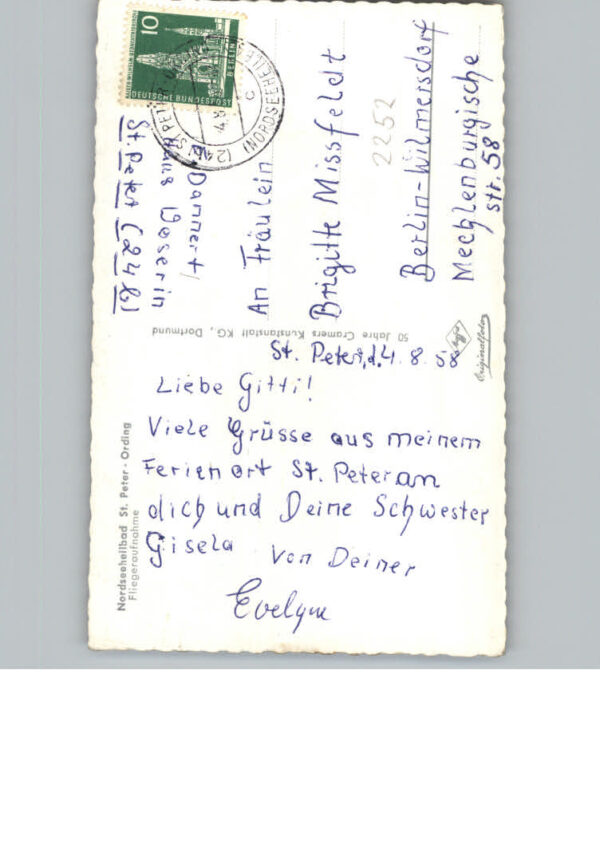 10
BERLIN
DEUTSCHE BUNDESPOST
(24b) ST. PETER
(NORDSEEHEILB
c
Dannert,
Haus Weserin
St. Peter (24b)
An Fräulein
Brigitte Missfeldt
2252
Berlin-Wilmersdorf
Mechlenburgische
str. 58
50 Jahre Cramers Kunstanstalt KG, Dortmund
Agfa
Originalfoto
St. Peter, d. 4. 8. 58
Liebe Gitti!
Viele Grüsse aus meinem
Ferienort St. Peter an
dich und Deine Schwester
Gisela von Deiner
Evelyne
Nordseeheilbad St. Peter-Ording
Fliegeraufnahme